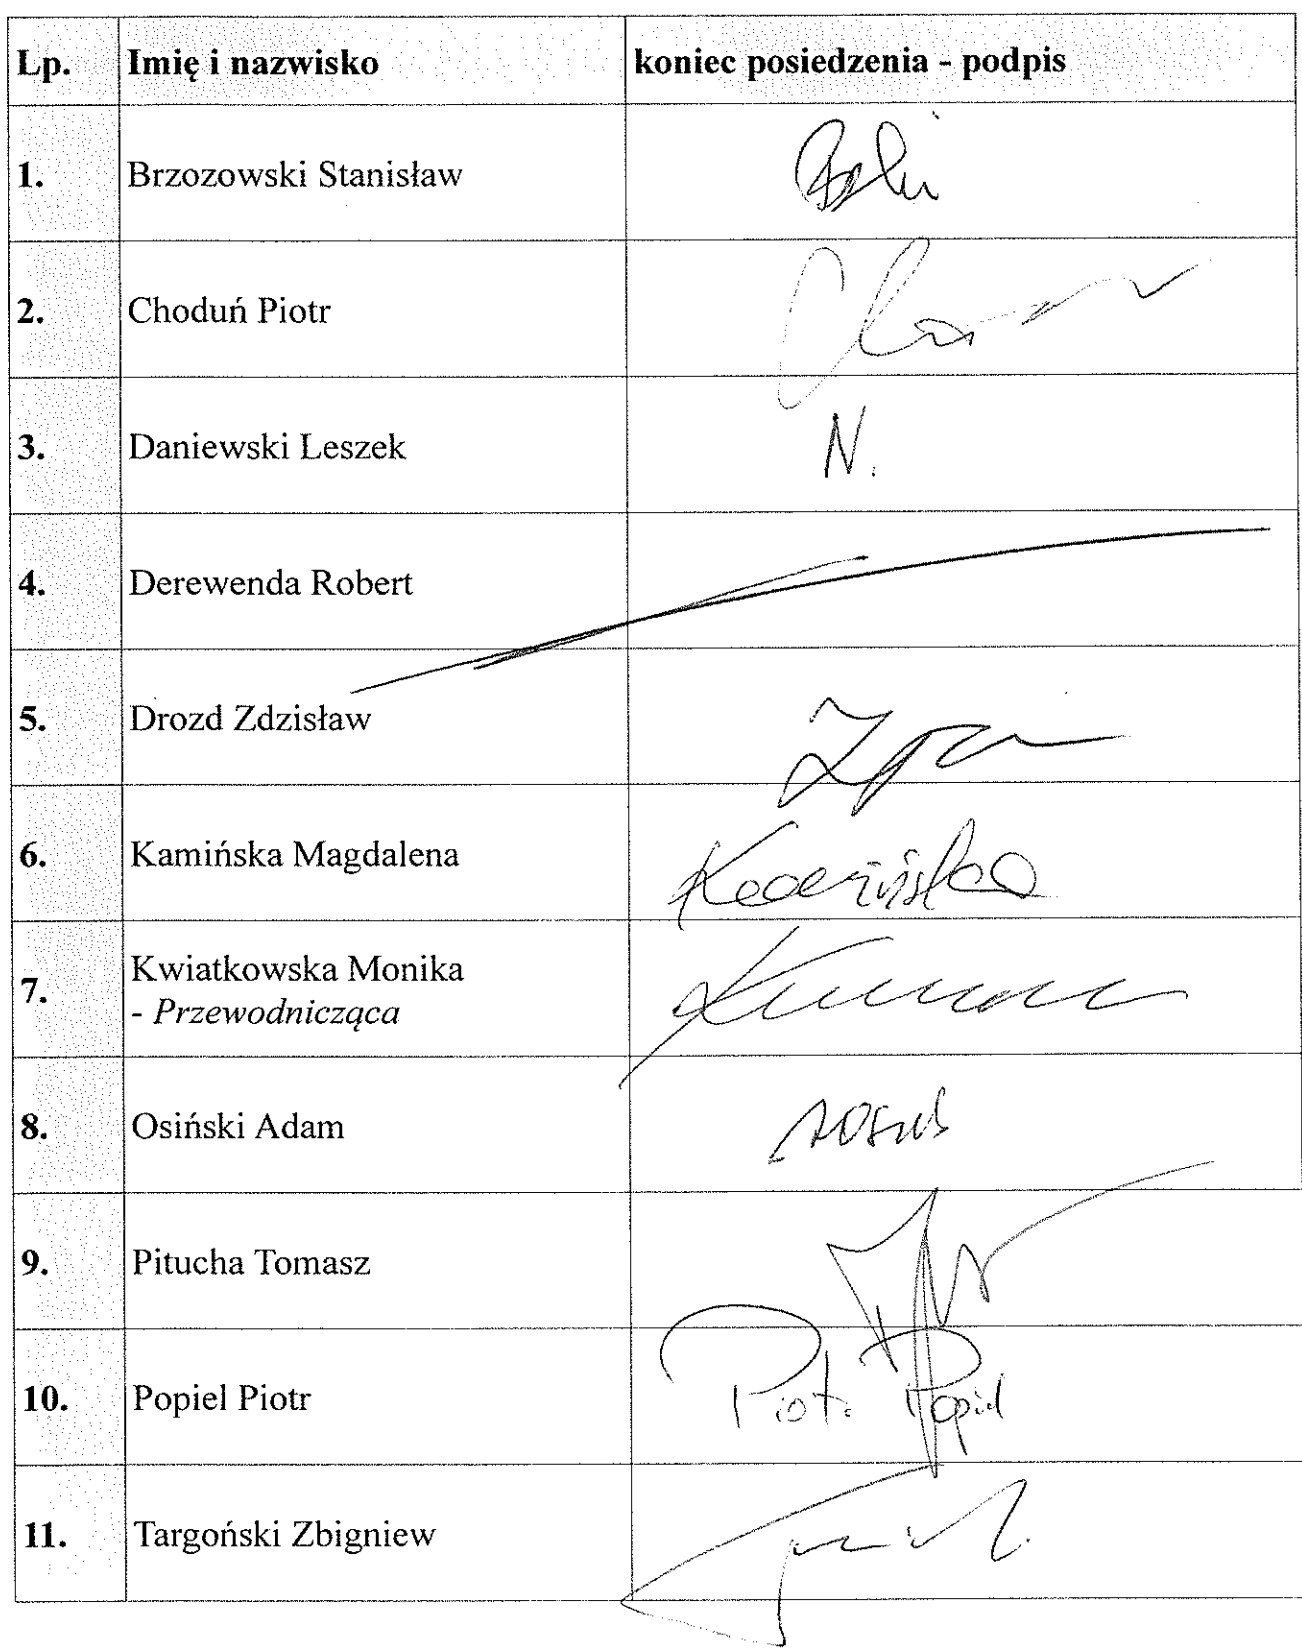 Lp. Imię i nazwisko koniec posiedzenia - podpis
1. Brzozowski Stanisław
2. Choduń Piotr
3. Daniewski Leszek N.
4. Derewenda Robert
5. Drozd Zdzisław
6. Kamińska Magdalena Kamińska
7. Kwiatkowska Monika
- Przewodnicząca
8. Osiński Adam
9. Pitucha Tomasz
10. Popiel Piotr Piotr Popiel
11. Targoński Zbigniew